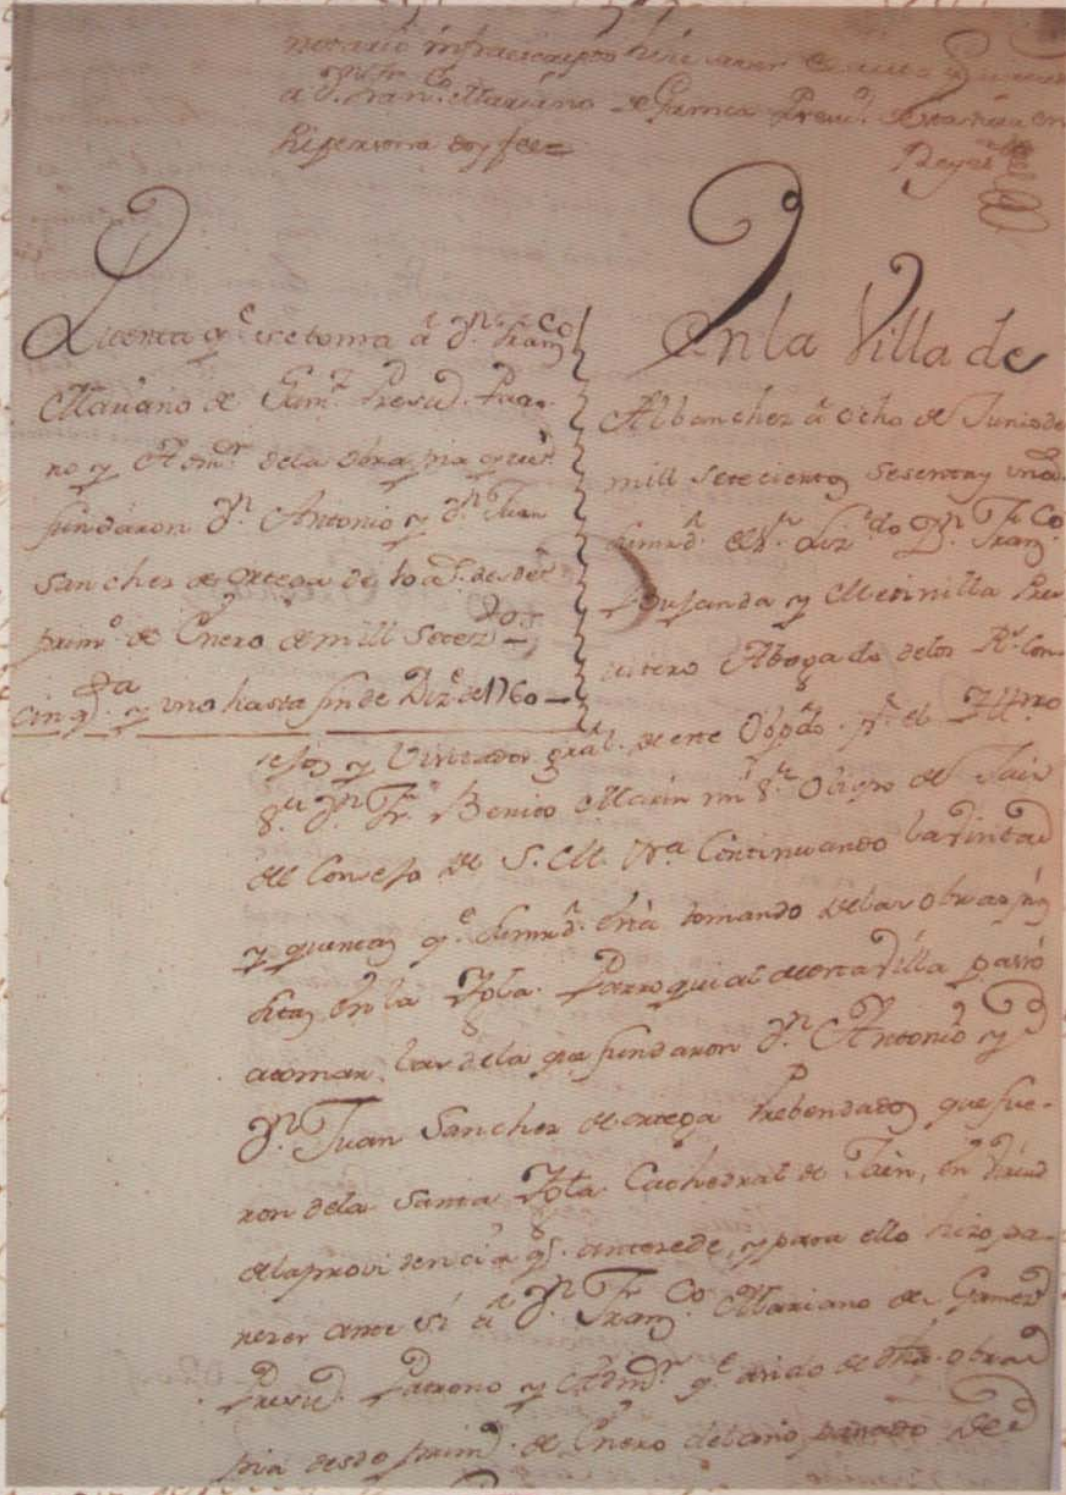 notario infraescripto hice saver el auto q.
a D.n Fran.co Mariano de Gamez Presv.o
su persona doy fee=
Reyes
Quenta q.e se toma â D.n Fran.co
Mariano de Gam.z Presv.o Patro-
no y Adm.r dela obra pia que
fundaron D.n Antonio y D.n Juan
Sanchez de Ortega de desde
prim.o de Enero de mill Setez.dos
cinq.ta y uno hasta fin de Diz.e de 1760
En la Villa de
Albanchez â ocho de Junio de
mill setecientos sesenta y uno
sumrd. el S.r Liz.do D.n Fran.co
Lousanda y Merinilla Presv
vitero Abogado delos R.s Con-
sejos y Visitador gral. de este Obpdo. p.r el Illmo
S.r D.n Fr. Benito Marin mi S.r Obispo de Jaen
del Consejo de S. M. &.a Continuando la Visita
y quentas q.e sumrd. está tomando delas obras pias
sitas en la Igla. Parroquial de esta Villa pasó
atomar las dela que fundaron D.n Antonio y
D.n Juan Sanchez de ortega Prebendados que fue-
ron dela Santa Igla Cathedral de Jaén, en virtud
dela providencia q.e antecede, y para ello hizo pa-
rezer ante sí â D.n Fran.co Mariano de Gamez
Presv.o Patrono y Adm.r q.e asido de dha. obra
pia desde prim.o de Enero del año pasado de